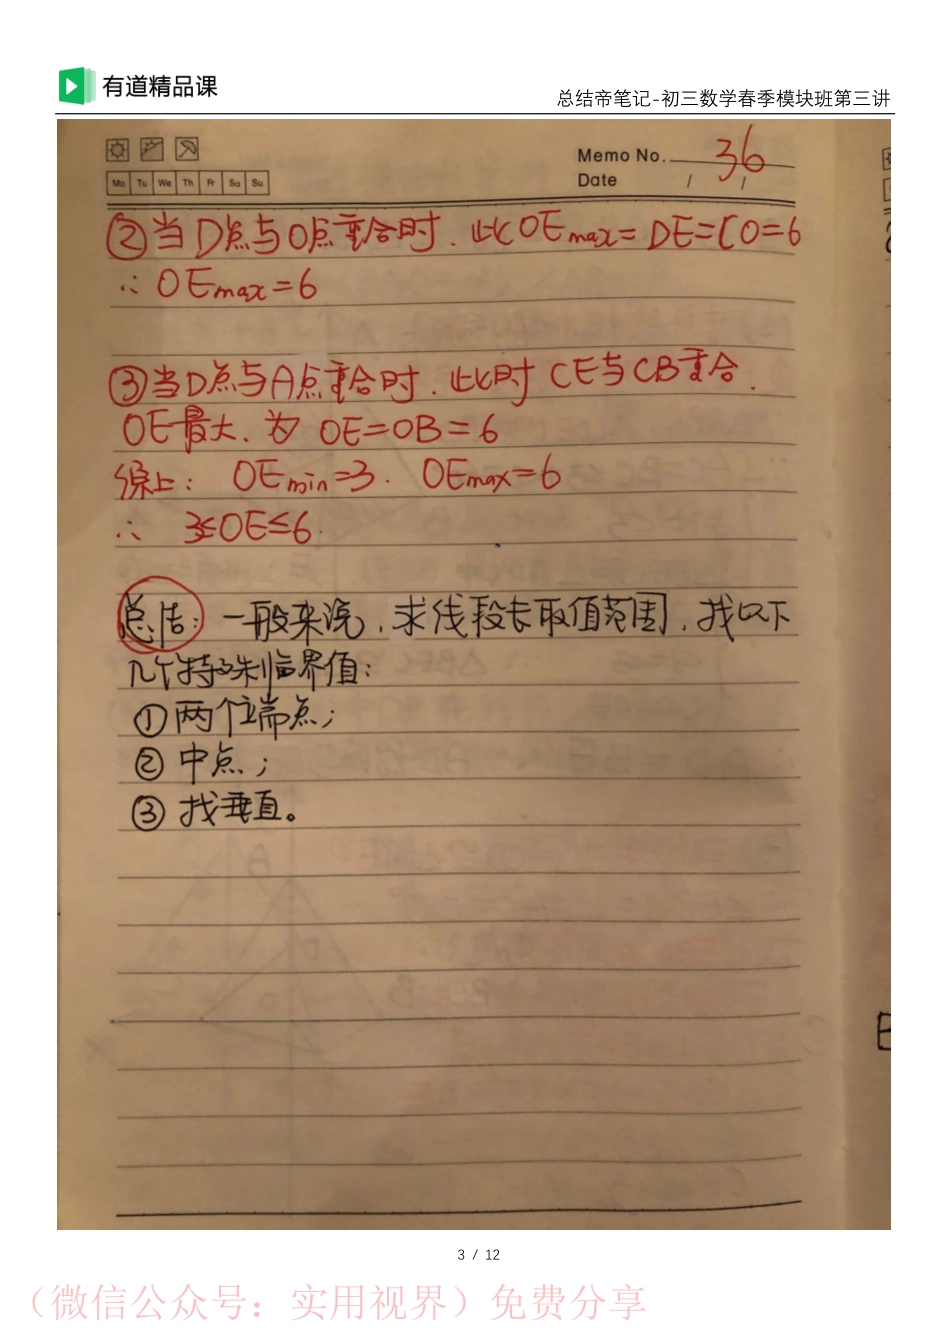 有道精品课
总结帝笔记-初三数学春季模块班第三讲
Memo No. 36
Mo Tu We Th Fr Sa Su
Date / /
②当D点与O点重合时.此OEmax=DE=CO=6
∴OEmax=6
③当D点与A点重合时.此时CE与CB重合.
OE最大.为OE=OB=6
综上: OEmin=3. OEmax=6
∴ 3≤OE≤6.
总结:一般来说,求线段长取值范围,找以下
几个特殊临界值:
①两个端点;
②中点;
③找垂直。
3 / 12
（微信公众号：实用视界）免费分享